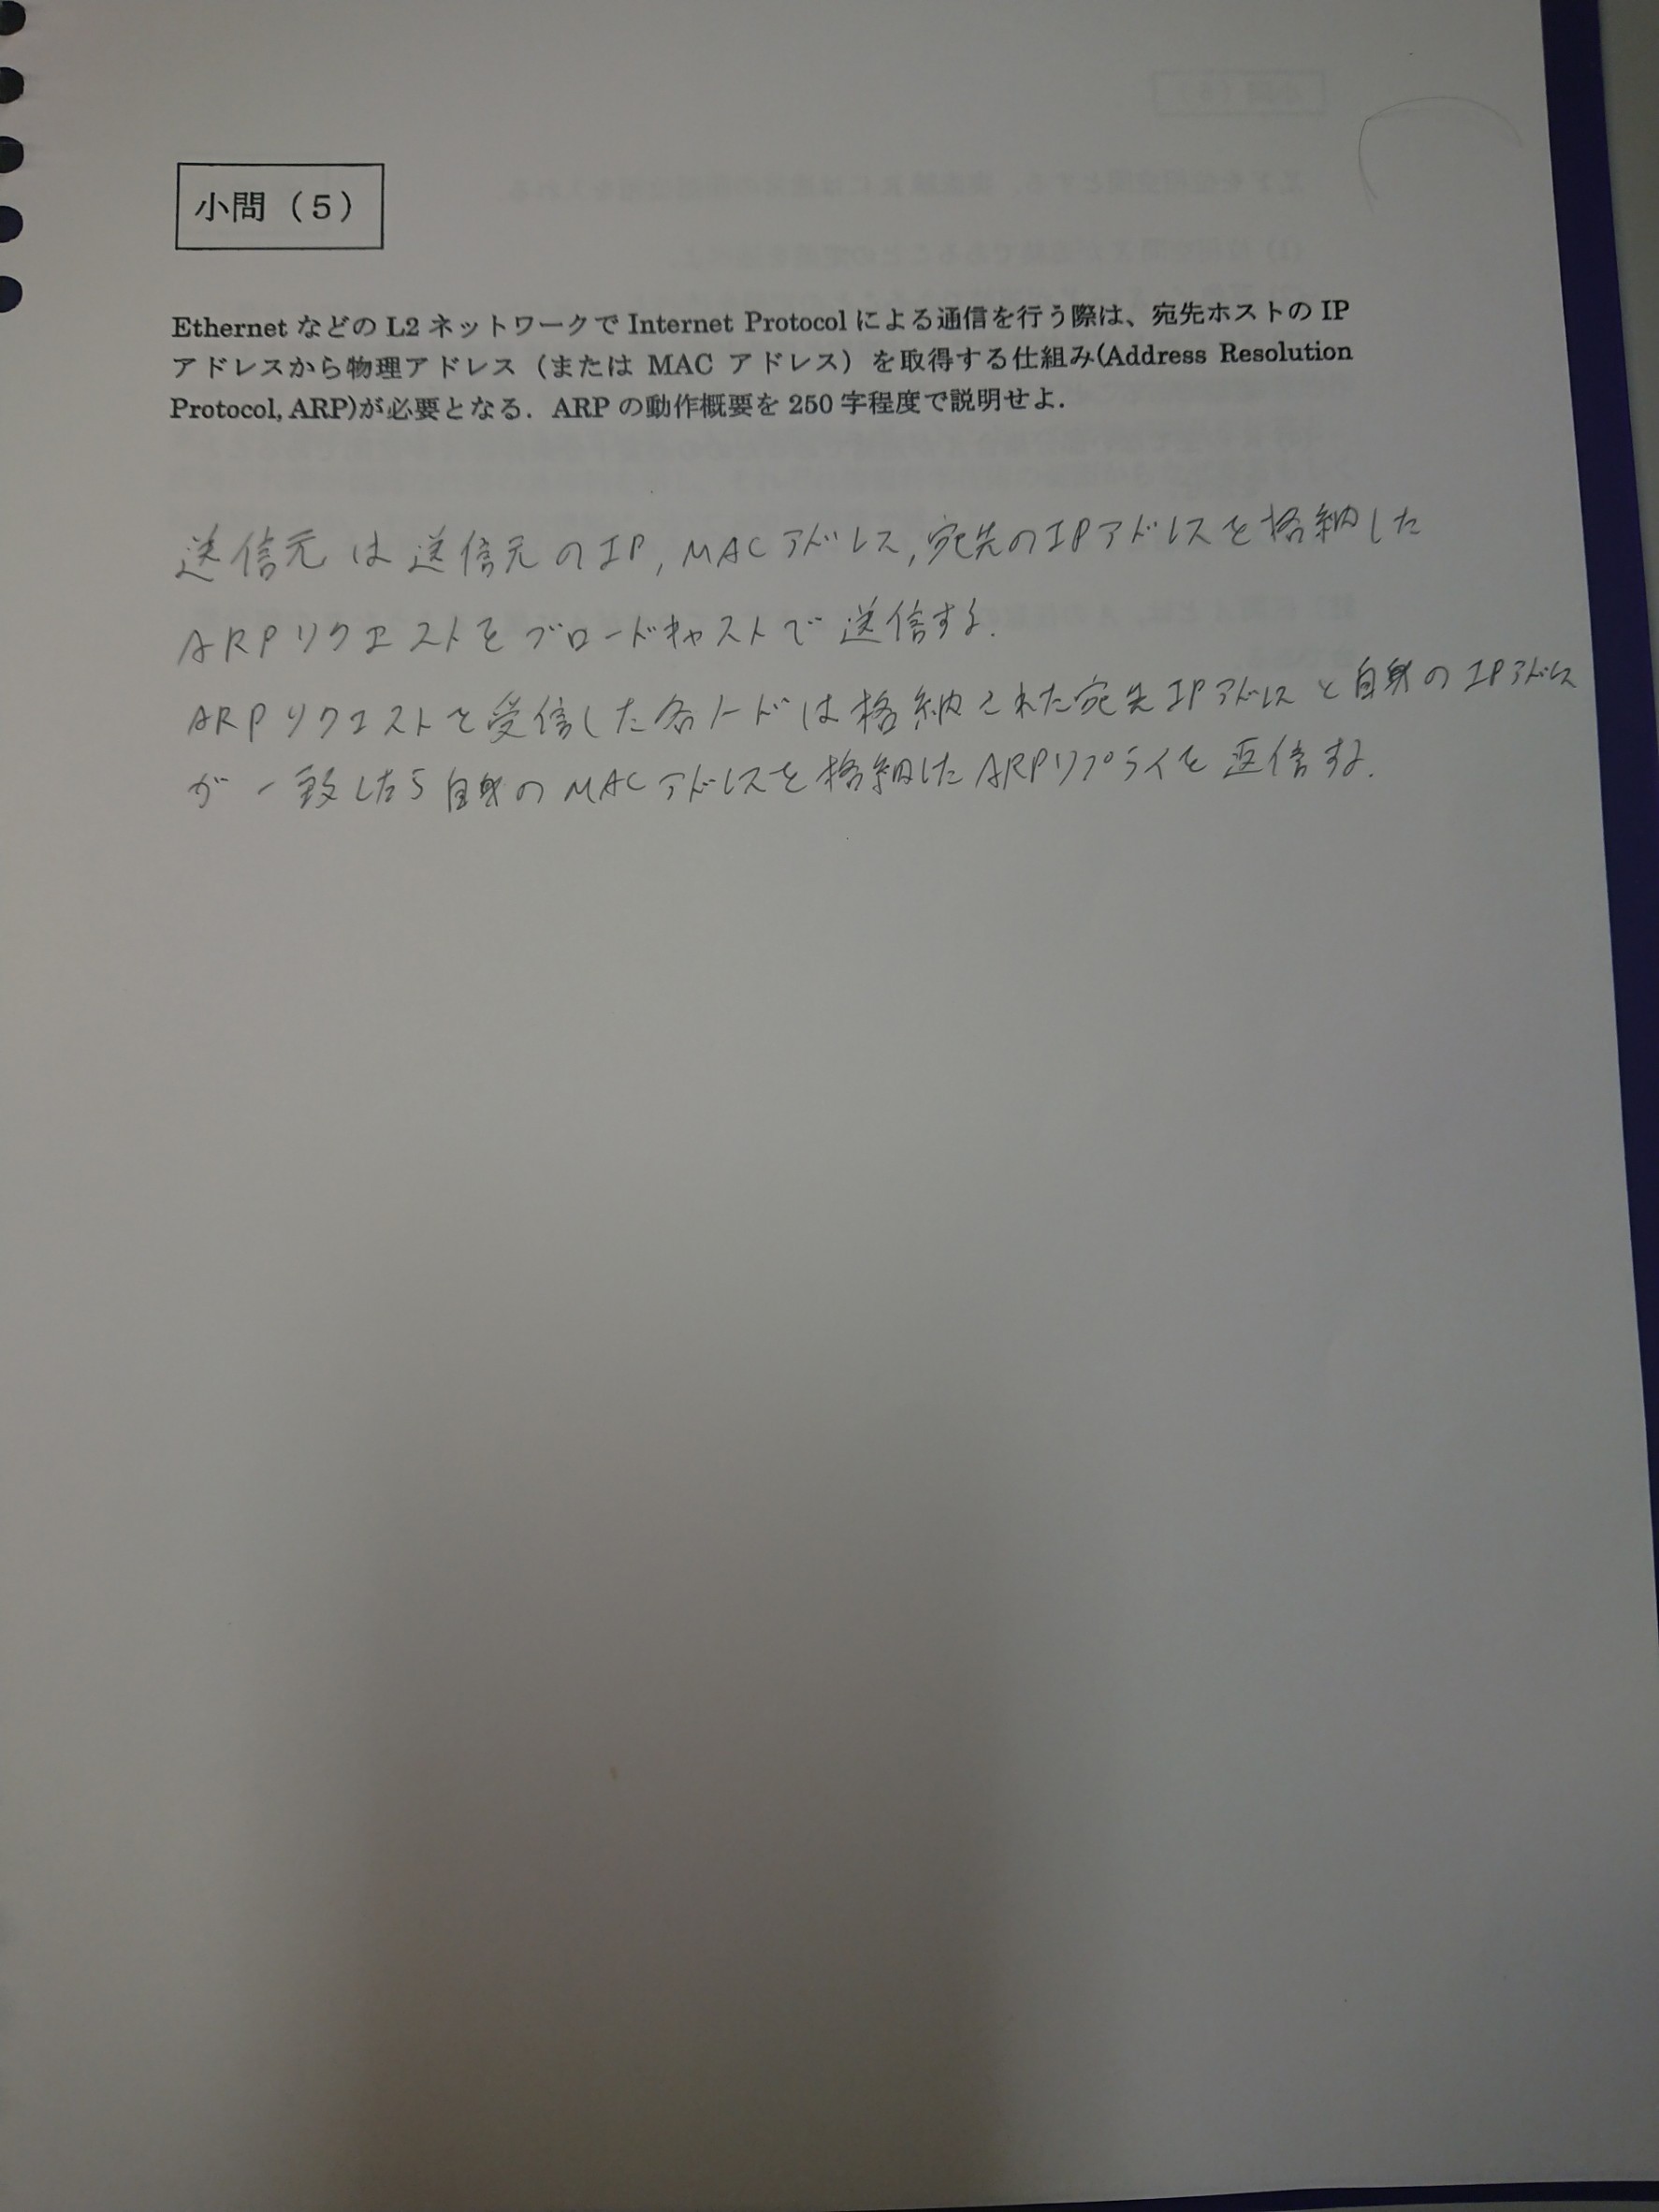 小問（5）
Ethernet などの L2 ネットワークで Internet Protocol による通信を行う際は、宛先ホストの IP
アドレスから物理アドレス（または MAC アドレス）を取得する仕組み(Address Resolution
Protocol, ARP)が必要となる．ARP の動作概要を 250 字程度で説明せよ．
送信元は送信元のIP, MACアドレス,宛先のIPアドレスを格納した
ARPリクエストをブロードキャストで送信する.
ARPリクエストを受信した各ノードは格納された宛先IPアドレスと自身のIPアドレス
が一致したら自身のMACアドレスを格納したARPリプライを返信する.